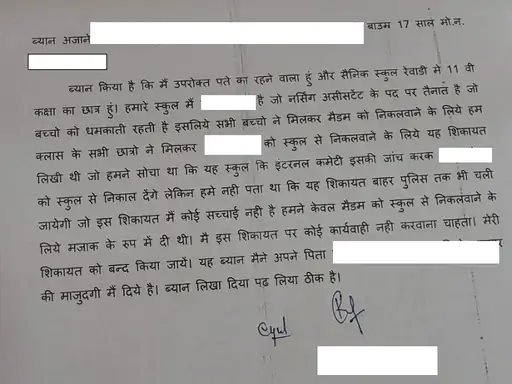 ब्यान अजाने बाउम 17 साल मो.न.
ब्यान किया है कि मैं उपरोक्त पते का रहने वाला हुं और सैनिक स्कुल रेवाडी मे 11 वी
कक्षा का छात्र हुं। हमारे स्कुल मैं है जो नर्सिंग असीसटेंट के पद पर तैनात है जो
बच्चो को धमकाती रहती है इसलिये सभी बच्चो ने मिलकर मैडम को निकलवाने के लिये हम
क्लास के सभी छात्रो ने मिलकर को स्कुल से निकलवाने के लिये यह शिकायत
लिखी थी जो हमने सोचा था कि यह स्कुल कि इंटरनल कमेटी इसकी जांच करक
को स्कुल से निकाल देंगे लेकिन हमे नही पता था कि यह शिकायत बाहर पुलिस तक भी चली
जायेगी जो इस शिकायत मैं कोई सच्चाई नही है हमने केवल मैडम को स्कुल से निकलवाने के
लिये मजाक के रुप में दी थी। मै इस शिकायत पर कोई कार्यवाही नही करवाना चाहता। मेरी
शिकायत को बन्द किया जायें। यह ब्यान मैने अपने पिता
की माजुदगी मैं दिये है। ब्यान लिखा दिया पढ लिया ठीक है।